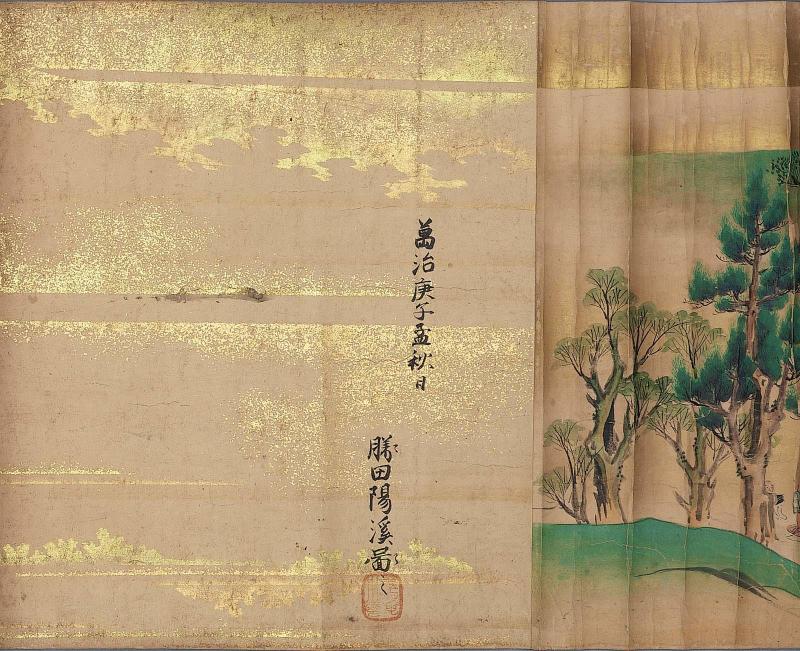 萬治庚子孟秋日
勝田陽溪圖之